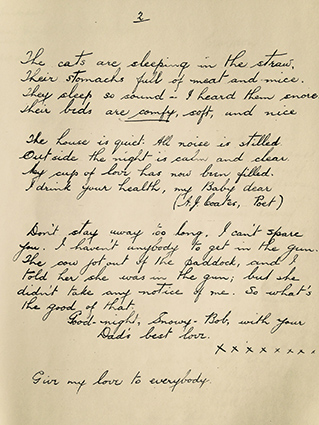 2
The cats are sleeping in the straw.
Their stomachs full of meat and mice.
They sleep so sound - I heard them snore
Their bids are comfy, soft, and nice
The house is quiet. All noise is stilled.
Outside the night is calm and clear.
My cup of love has now been filled.
I drink your health, my Baby dear
(A.J Coates, Poet)
Don't stay away too long. I can't spare
you. I haven't anybody to get in the gum.
The cow got out of the paddock, and I
told her she was in the gum; but she
didn't take any notice of me. So what's
the good of that.
Good-night, Snowy-Bob, with your
Dad's best love.
x x x x x x x x
Give my love to everybody.